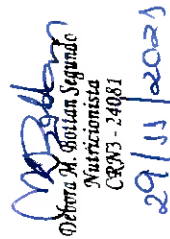 Débora M. Bottan Segundo
Nutricionista
CRN3 - 24081
29/11/2021